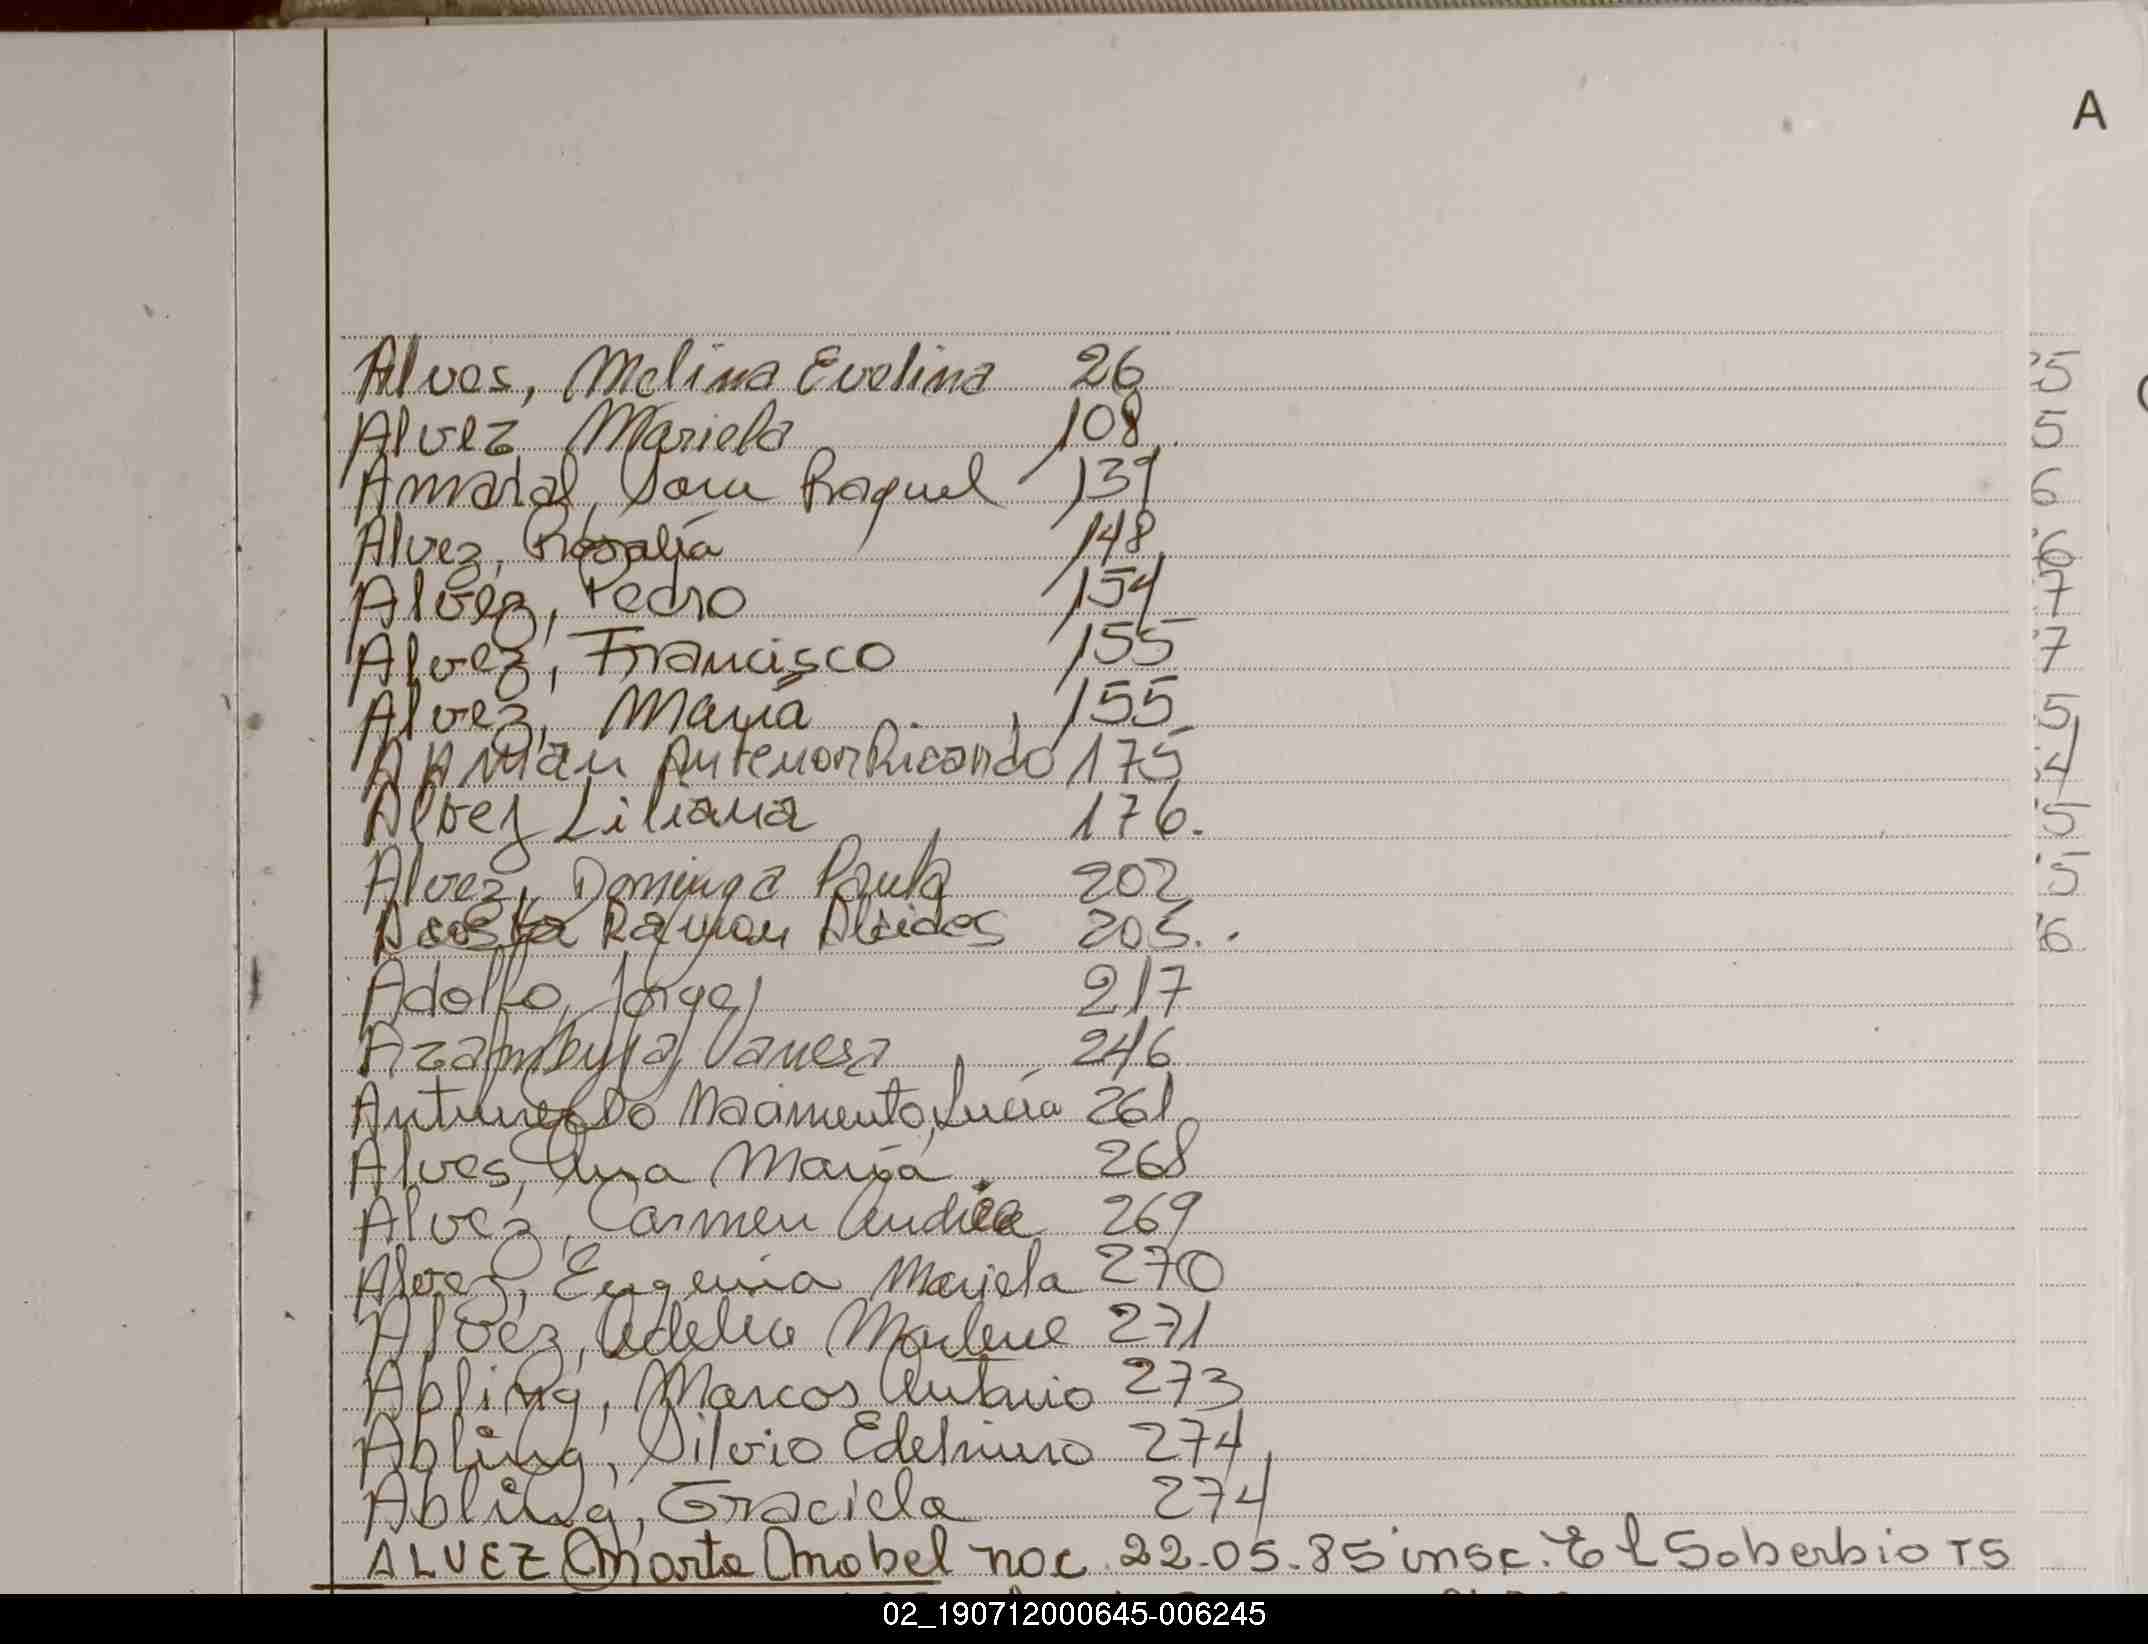 A
Alves, Melina Evelina 26
Alvez Mariela 108
Amaral, Sara Raquel 139
Alvez, Rosalía 148
Alvez, Pedro 154
Alvez, Francisco 155
Alvez, María 155
Antenor Ricardo 175
Alvez Liliana 176.
Alvez, Dominga Paula 202
Acosta Ramon Alcides 205..
Adolfo, Jorge 217
Azambuja, Vanesa 246
Antunez Do Nacimento, Lucía 261
Alves, Ana María 268
Alvez, Carmen Andrea 269
Alvez, Eugenia Mariela 270
Alvez, Adelia Marlene 271
Abling, Marcos Antonio 273
Abling, Silvio Edelmiro 274
Abling, Graciela 274
ALVEZ Marta Mabel nac. 22-05-85 insc. El Soberbio TS
5
5
6
6
7
7
5
4
5
5
6
02_190712000645-006245